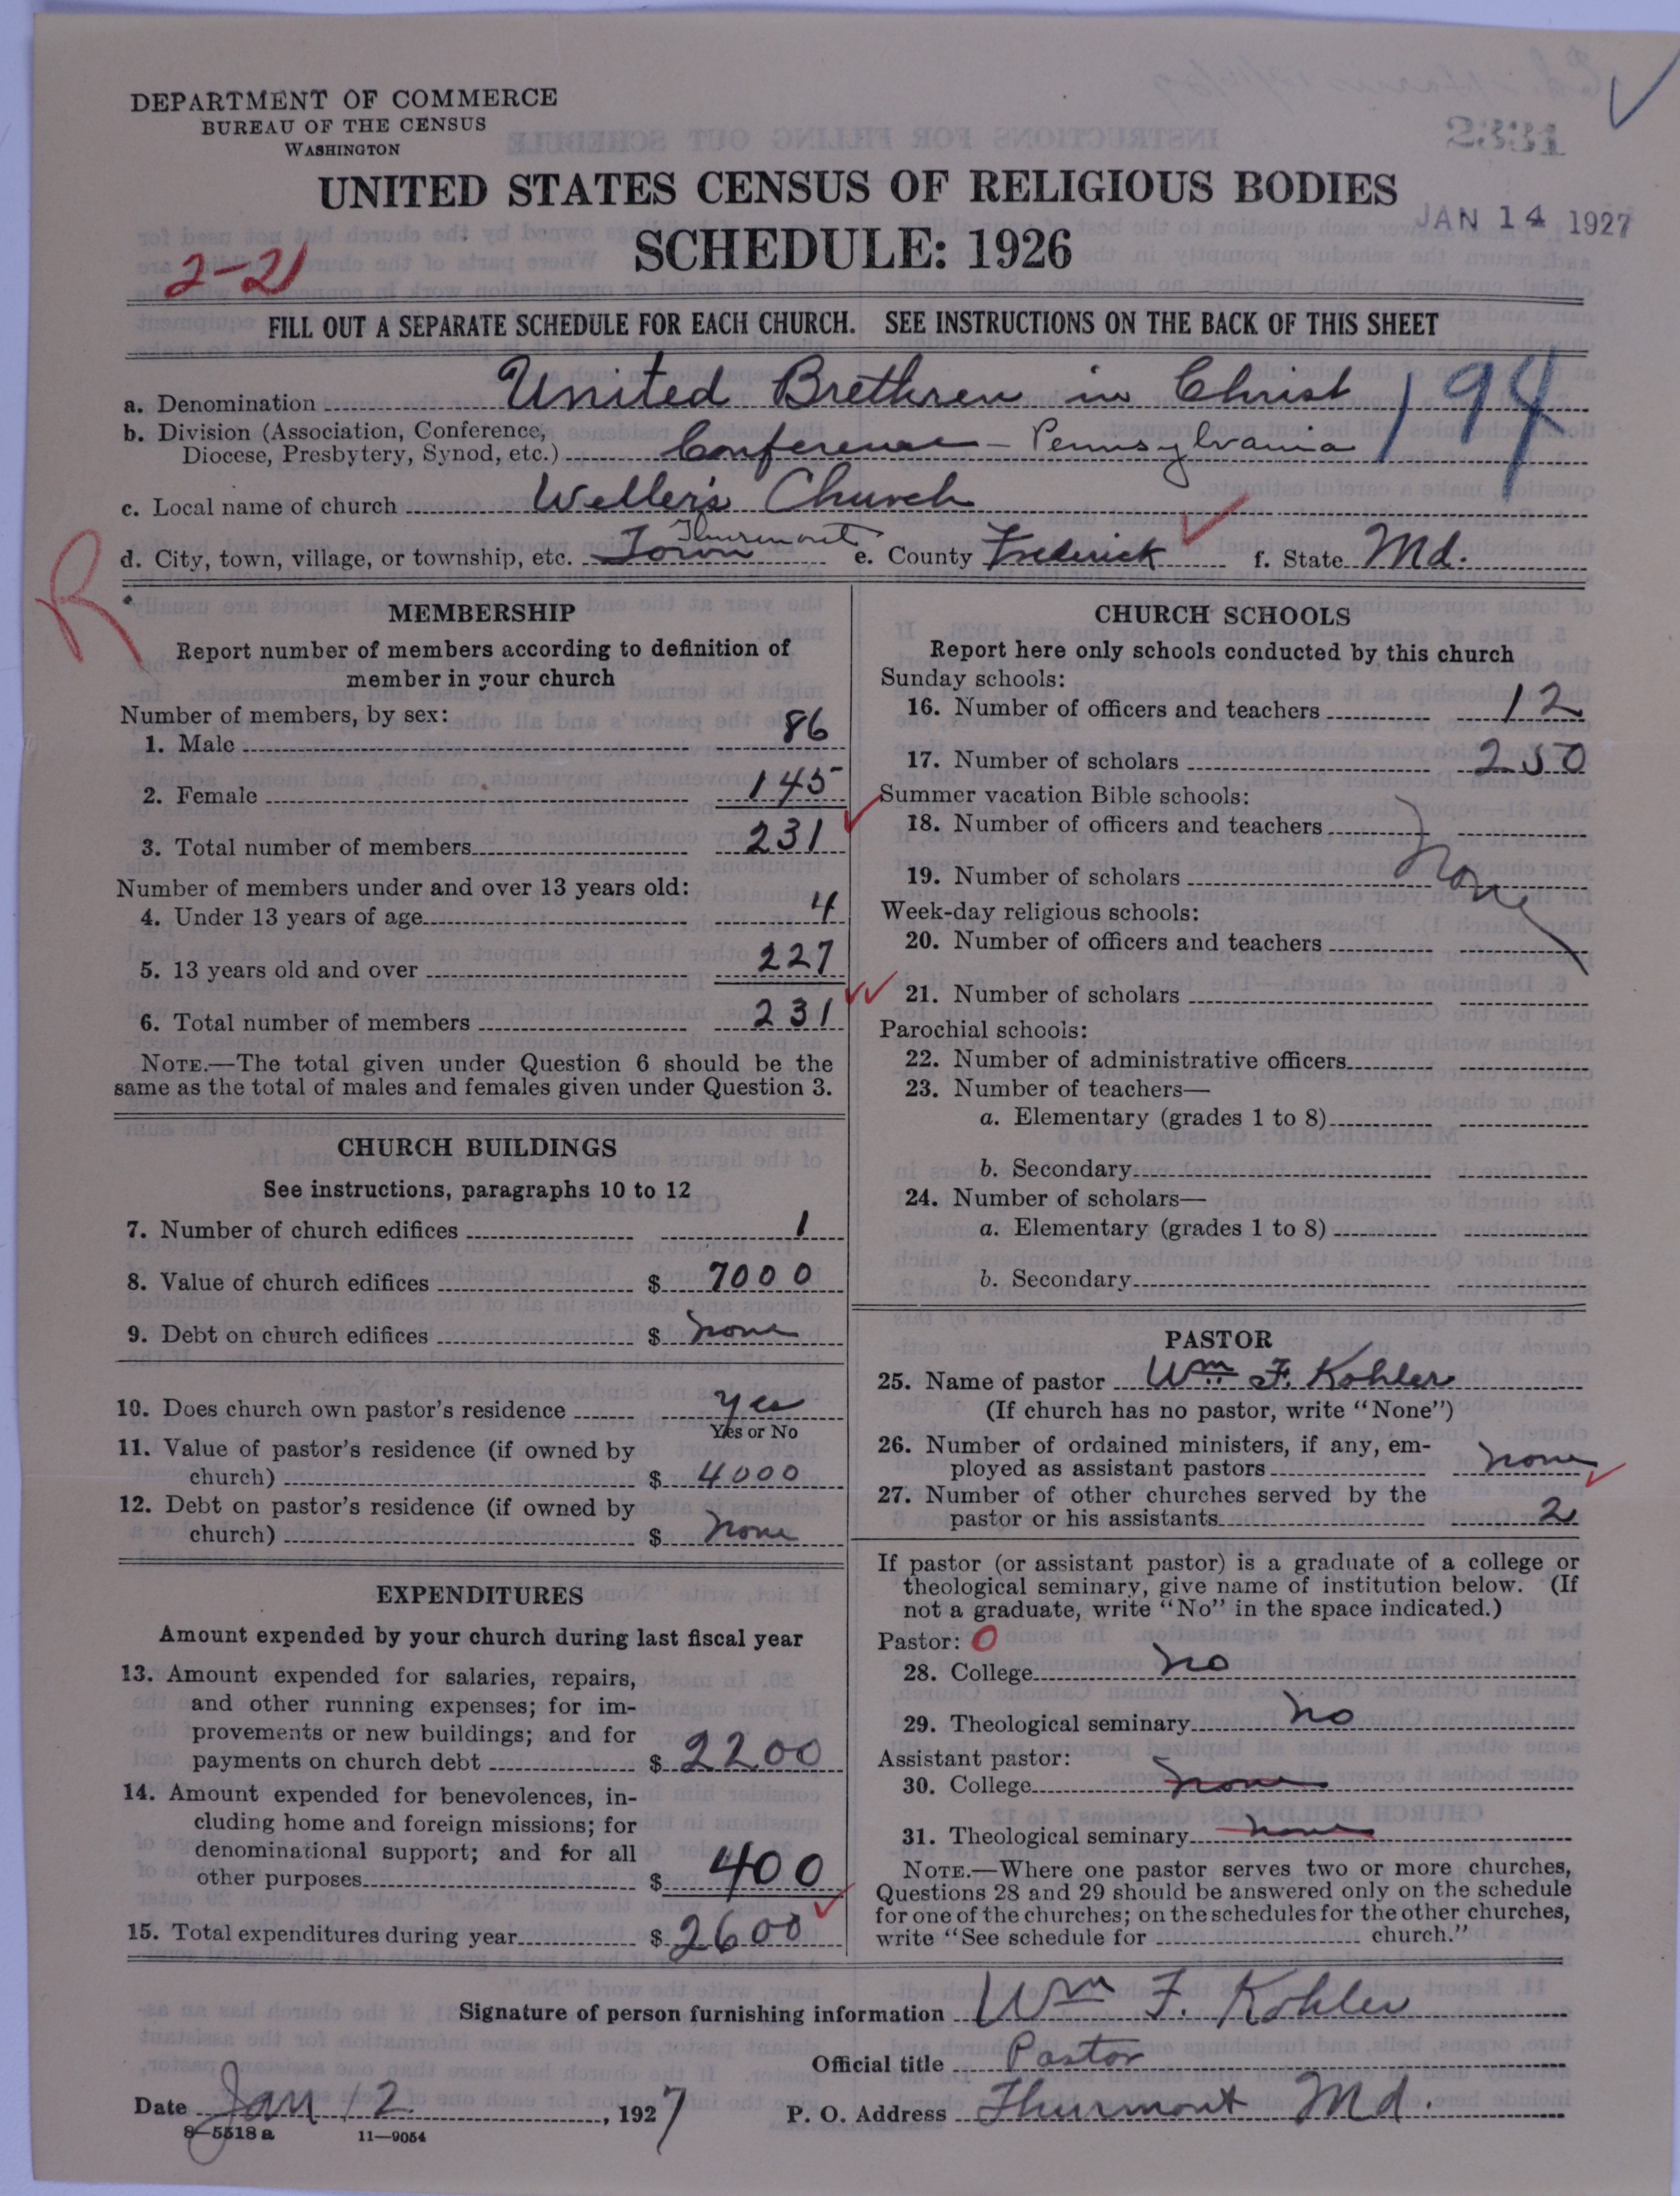 DEPARTMENT OF COMMERCE
BUREAU OF THE CENSUS
WASHINGTON
2331
UNITED STATES CENSUS OF RELIGIOUS BODIES
JAN 14 1927
SCHEDULE: 1926
2-21
FILL OUT A SEPARATE SCHEDULE FOR EACH CHURCH. SEE INSTRUCTIONS ON THE BACK OF THIS SHEET
a. Denomination United Brethren in Christ 194
b. Division (Association, Conference,
Diocese, Presbytery, Synod, etc.) Conference - Pennsylvania
c. Local name of church Weller's Church
d. City, town, village, or township, etc. Town Thurmont e. County Frederick f. State Md.
R
MEMBERSHIP
Report number of members according to definition of
member in your church
Number of members, by sex:
1. Male 86
2. Female 145
3. Total number of members 231
Number of members under and over 13 years old:
4. Under 13 years of age 4
5. 13 years old and over 227
6. Total number of members 231
NOTE.—The total given under Question 6 should be the
same as the total of males and females given under Question 3.
CHURCH BUILDINGS
See instructions, paragraphs 10 to 12
7. Number of church edifices 1
8. Value of church edifices $ 7000
9. Debt on church edifices $ none
10. Does church own pastor's residence Yes
Yes or No
11. Value of pastor's residence (if owned by
church) $ 4000
12. Debt on pastor's residence (if owned by
church) $ none
EXPENDITURES
Amount expended by your church during last fiscal year
13. Amount expended for salaries, repairs,
and other running expenses; for im-
provements or new buildings; and for
payments on church debt $ 2200
14. Amount expended for benevolences, in-
cluding home and foreign missions; for
denominational support; and for all
other purposes $ 400
15. Total expenditures during year $ 2600
CHURCH SCHOOLS
Report here only schools conducted by this church
Sunday schools:
16. Number of officers and teachers 12
17. Number of scholars 250
Summer vacation Bible schools:
18. Number of officers and teachers
19. Number of scholars none
Week-day religious schools:
20. Number of officers and teachers
21. Number of scholars
Parochial schools:
22. Number of administrative officers
23. Number of teachers—
a. Elementary (grades 1 to 8)
b. Secondary
24. Number of scholars—
a. Elementary (grades 1 to 8)
b. Secondary
PASTOR
25. Name of pastor Wm F. Kohler
(If church has no pastor, write "None")
26. Number of ordained ministers, if any, em-
ployed as assistant pastors none
27. Number of other churches served by the
pastor or his assistants 2
If pastor (or assistant pastor) is a graduate of a college or
theological seminary, give name of institution below. (If
not a graduate, write "No" in the space indicated.)
Pastor: 0
28. College no
29. Theological seminary no
Assistant pastor:
30. College none
31. Theological seminary none
NOTE.—Where one pastor serves two or more churches,
Questions 28 and 29 should be answered only on the schedule
for one of the churches; on the schedules for the other churches,
write "See schedule for church."
Signature of person furnishing information Wm F. Kohler
Official title Pastor
Date Jan 12, 1927 P. O. Address Thurmont Md.
8-5518 a 11-9054